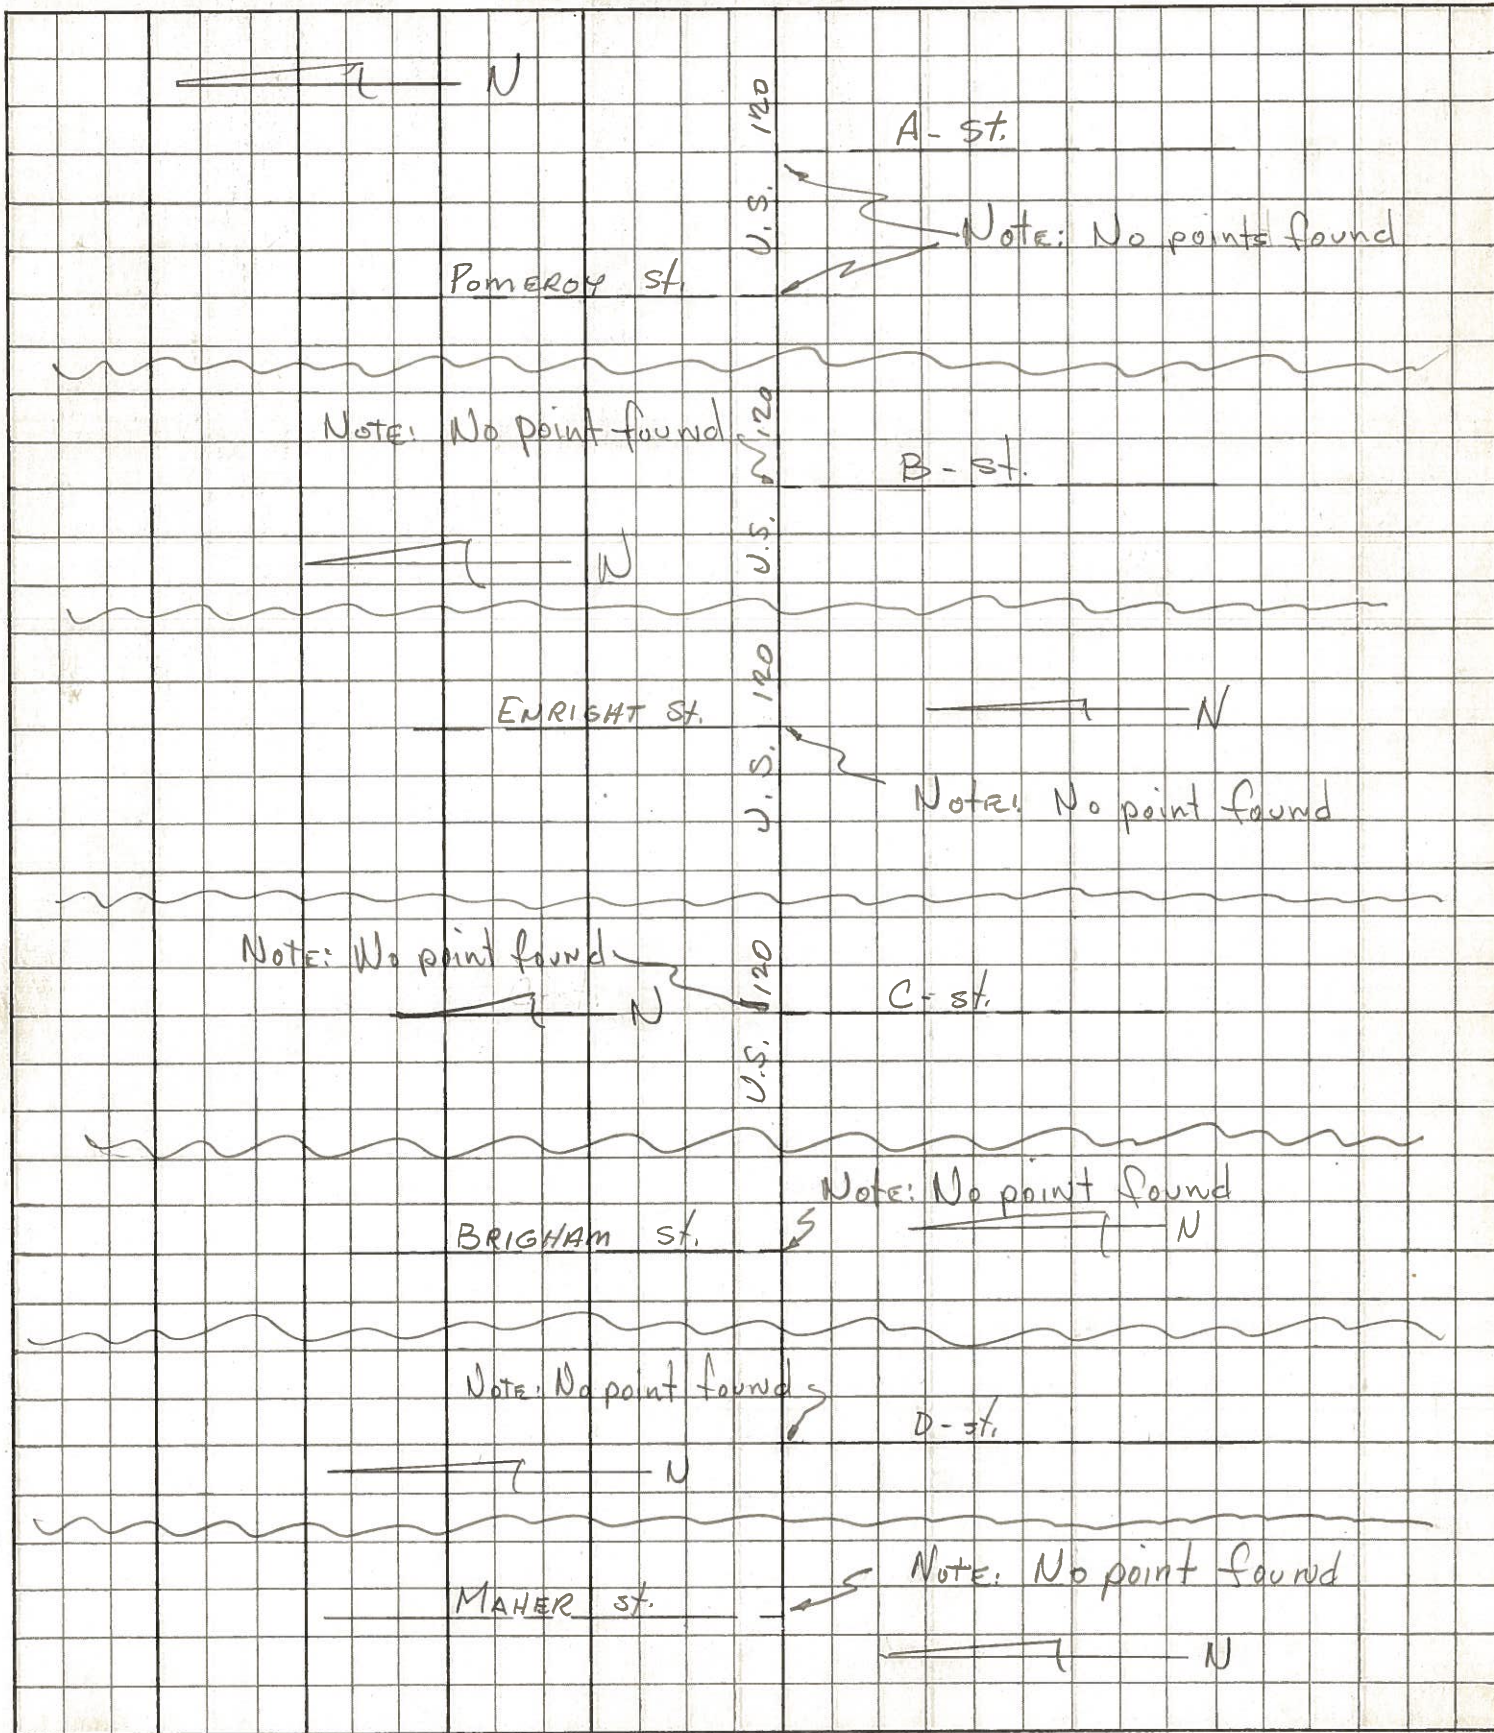 N
U.S. 120
A - St.
Note: No points found
Pomeroy St.
Note: No point found
U.S. 120
B - St.
N
U.S. 120
Enright St.
N
Note: No point found
Note: No point found
U.S. 120
N
C - St.
Note: No point found
Brigham St.
N
Note: No point found
D - St.
N
Note: No point found
Maher St.
N